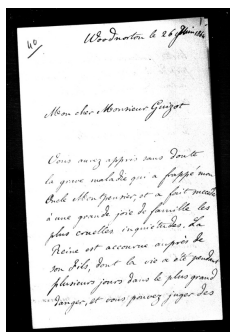 40
Woodnorton le 26 Juin
Mon cher Monsieur Guizot
Vous avez appris sans doute
la grave maladie qui a frappé mon
Oncle Montpensier, et a fait succéder
à une grande joie de famille les
plus cruelles inquiétudes. La
Reine est accourue auprès de
son fils, dont la vie a été pendant
plusieurs jours dans le plus grand
danger, et vous pouvez juger des